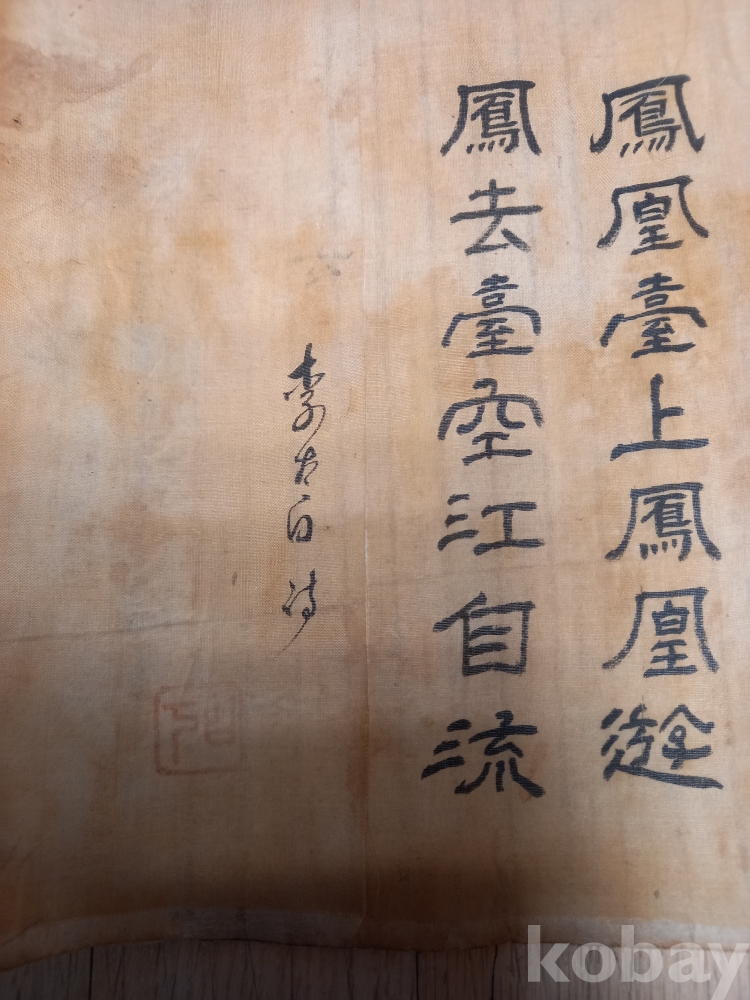 鳳凰臺上鳳凰遊
鳳去臺空江自流
李太白詩
kobay